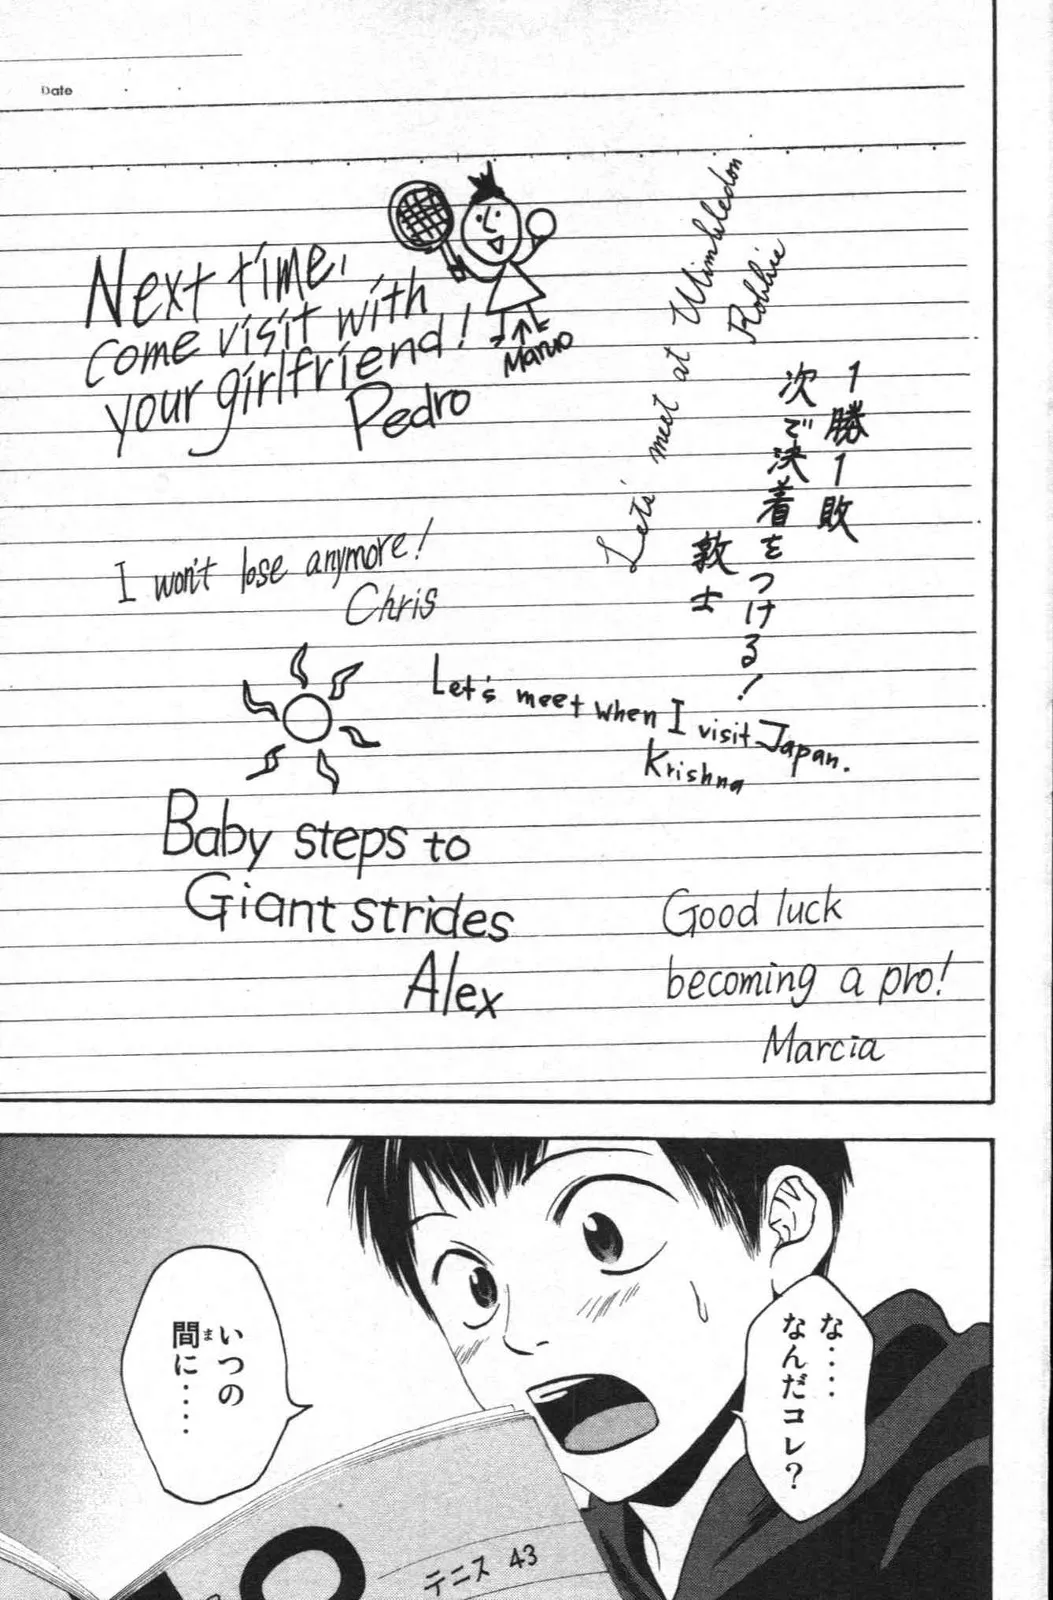 Date
Next time,
come visit with
your girlfriend!
Pedro
Maruo
Let's meet at Wimbledon
Robbie
1勝1敗
次で決着をつける!
敦士
I won't lose anymore!
Chris
Let's meet when I visit Japan.
Krishna
Baby steps to
Giant strides
Alex
Good luck
becoming a pro!
Marcia
な‥‥
なんだコレ?
いつの
間に‥‥
ま
テニス 43